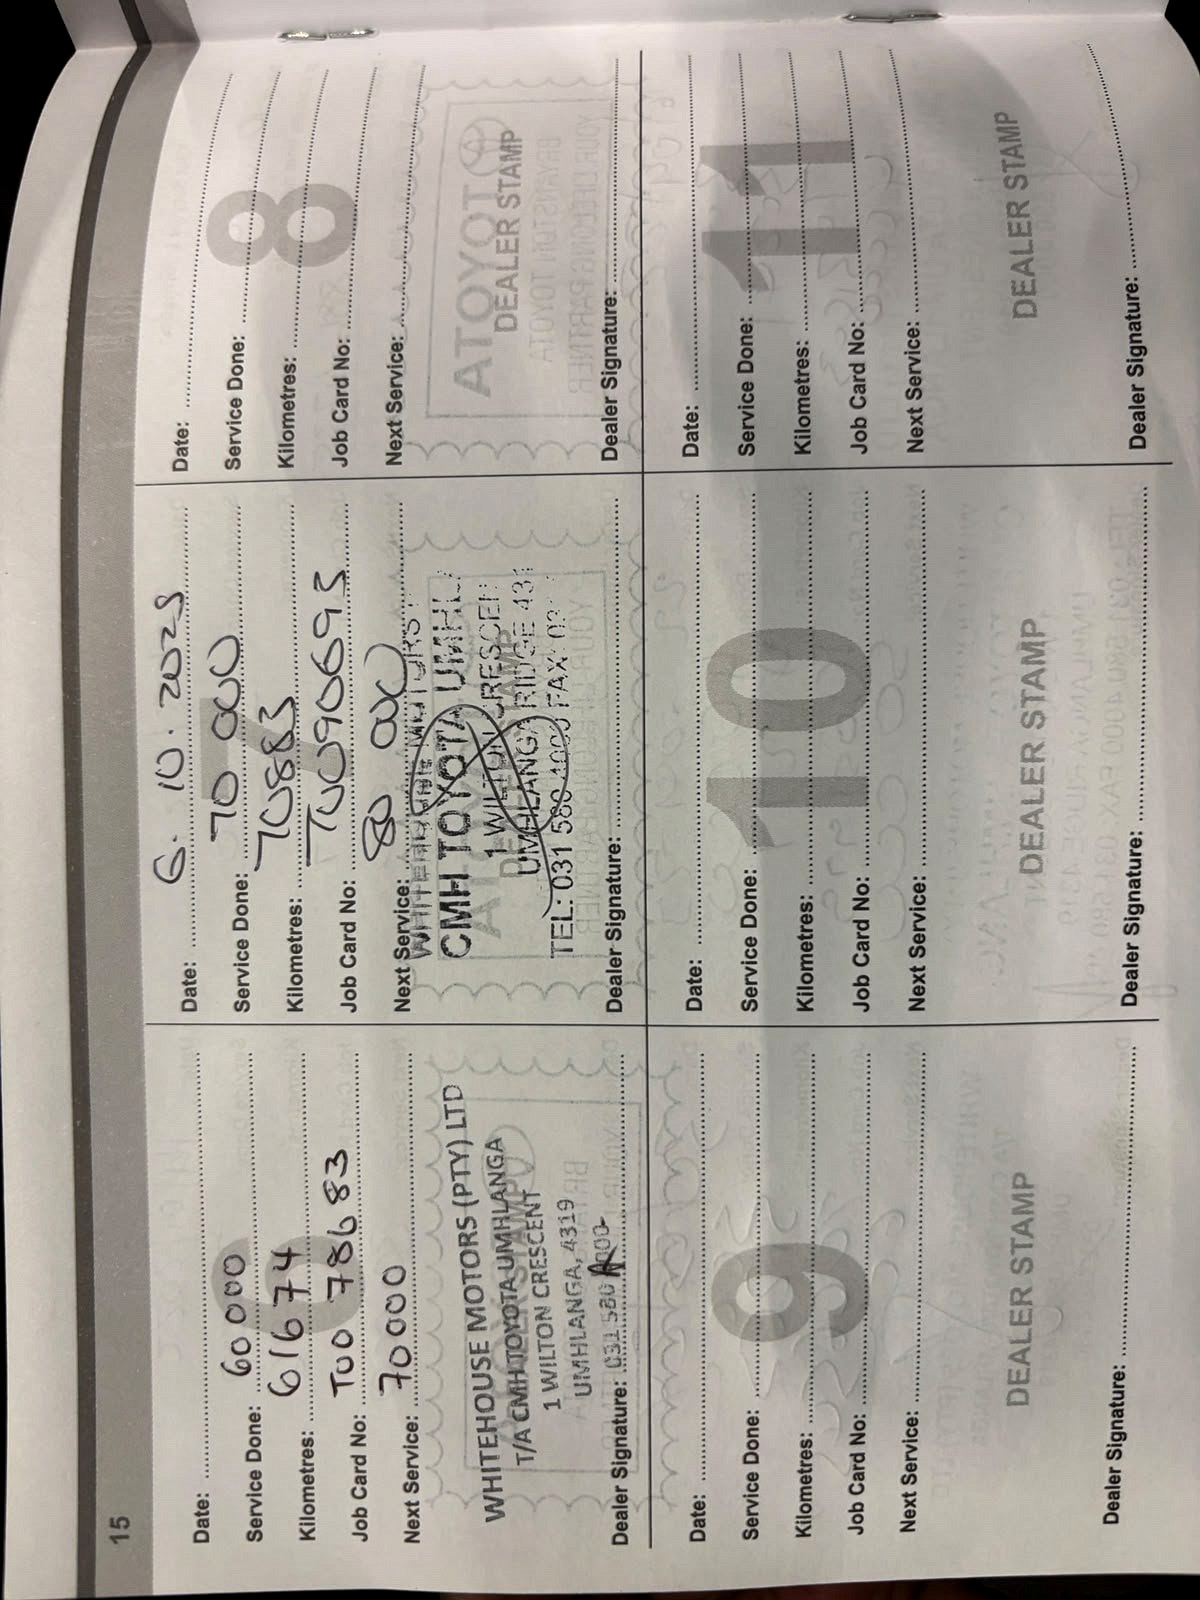 15
6
Date:
Service Done: 60 000
Kilometres: 61674
Job Card No: T00 78683
Next Service: 70000
WHITEHOUSE MOTORS (PTY) LTD
T/A CMH TOYOTA UMHLANGA
1 WILTON CRESCENT
UMHLANGA, 4319
031 580
Dealer Signature:
Date: 6. 10. 2023
Service Done: 70 000
Kilometres: 70883
Job Card No: T0090693
Next Service: 80 000
CMH TOYOTA UMHL
1 WILTON CRESCEN
UMHLANGA RIDGE 431
TEL: 031 580 FAX: 03
DEALER STAMP
Dealer Signature:
8
Date:
Service Done:
Kilometres:
Job Card No:
Next Service:
DEALER STAMP
Dealer Signature:
9
Date:
Service Done:
Kilometres:
Job Card No:
Next Service:
DEALER STAMP
Dealer Signature:
10
Date:
Service Done:
Kilometres:
Job Card No:
Next Service:
DEALER STAMP
Dealer Signature:
11
Date:
Service Done:
Kilometres:
Job Card No:
Next Service:
DEALER STAMP
Dealer Signature: